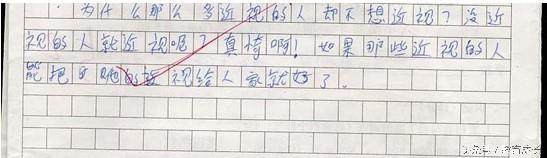 为什么那么多近视的人却不想近视？没近
视的人就近视呢？真椅啊！如果那些近视的人
能把的近视给人家就好了。
头条号